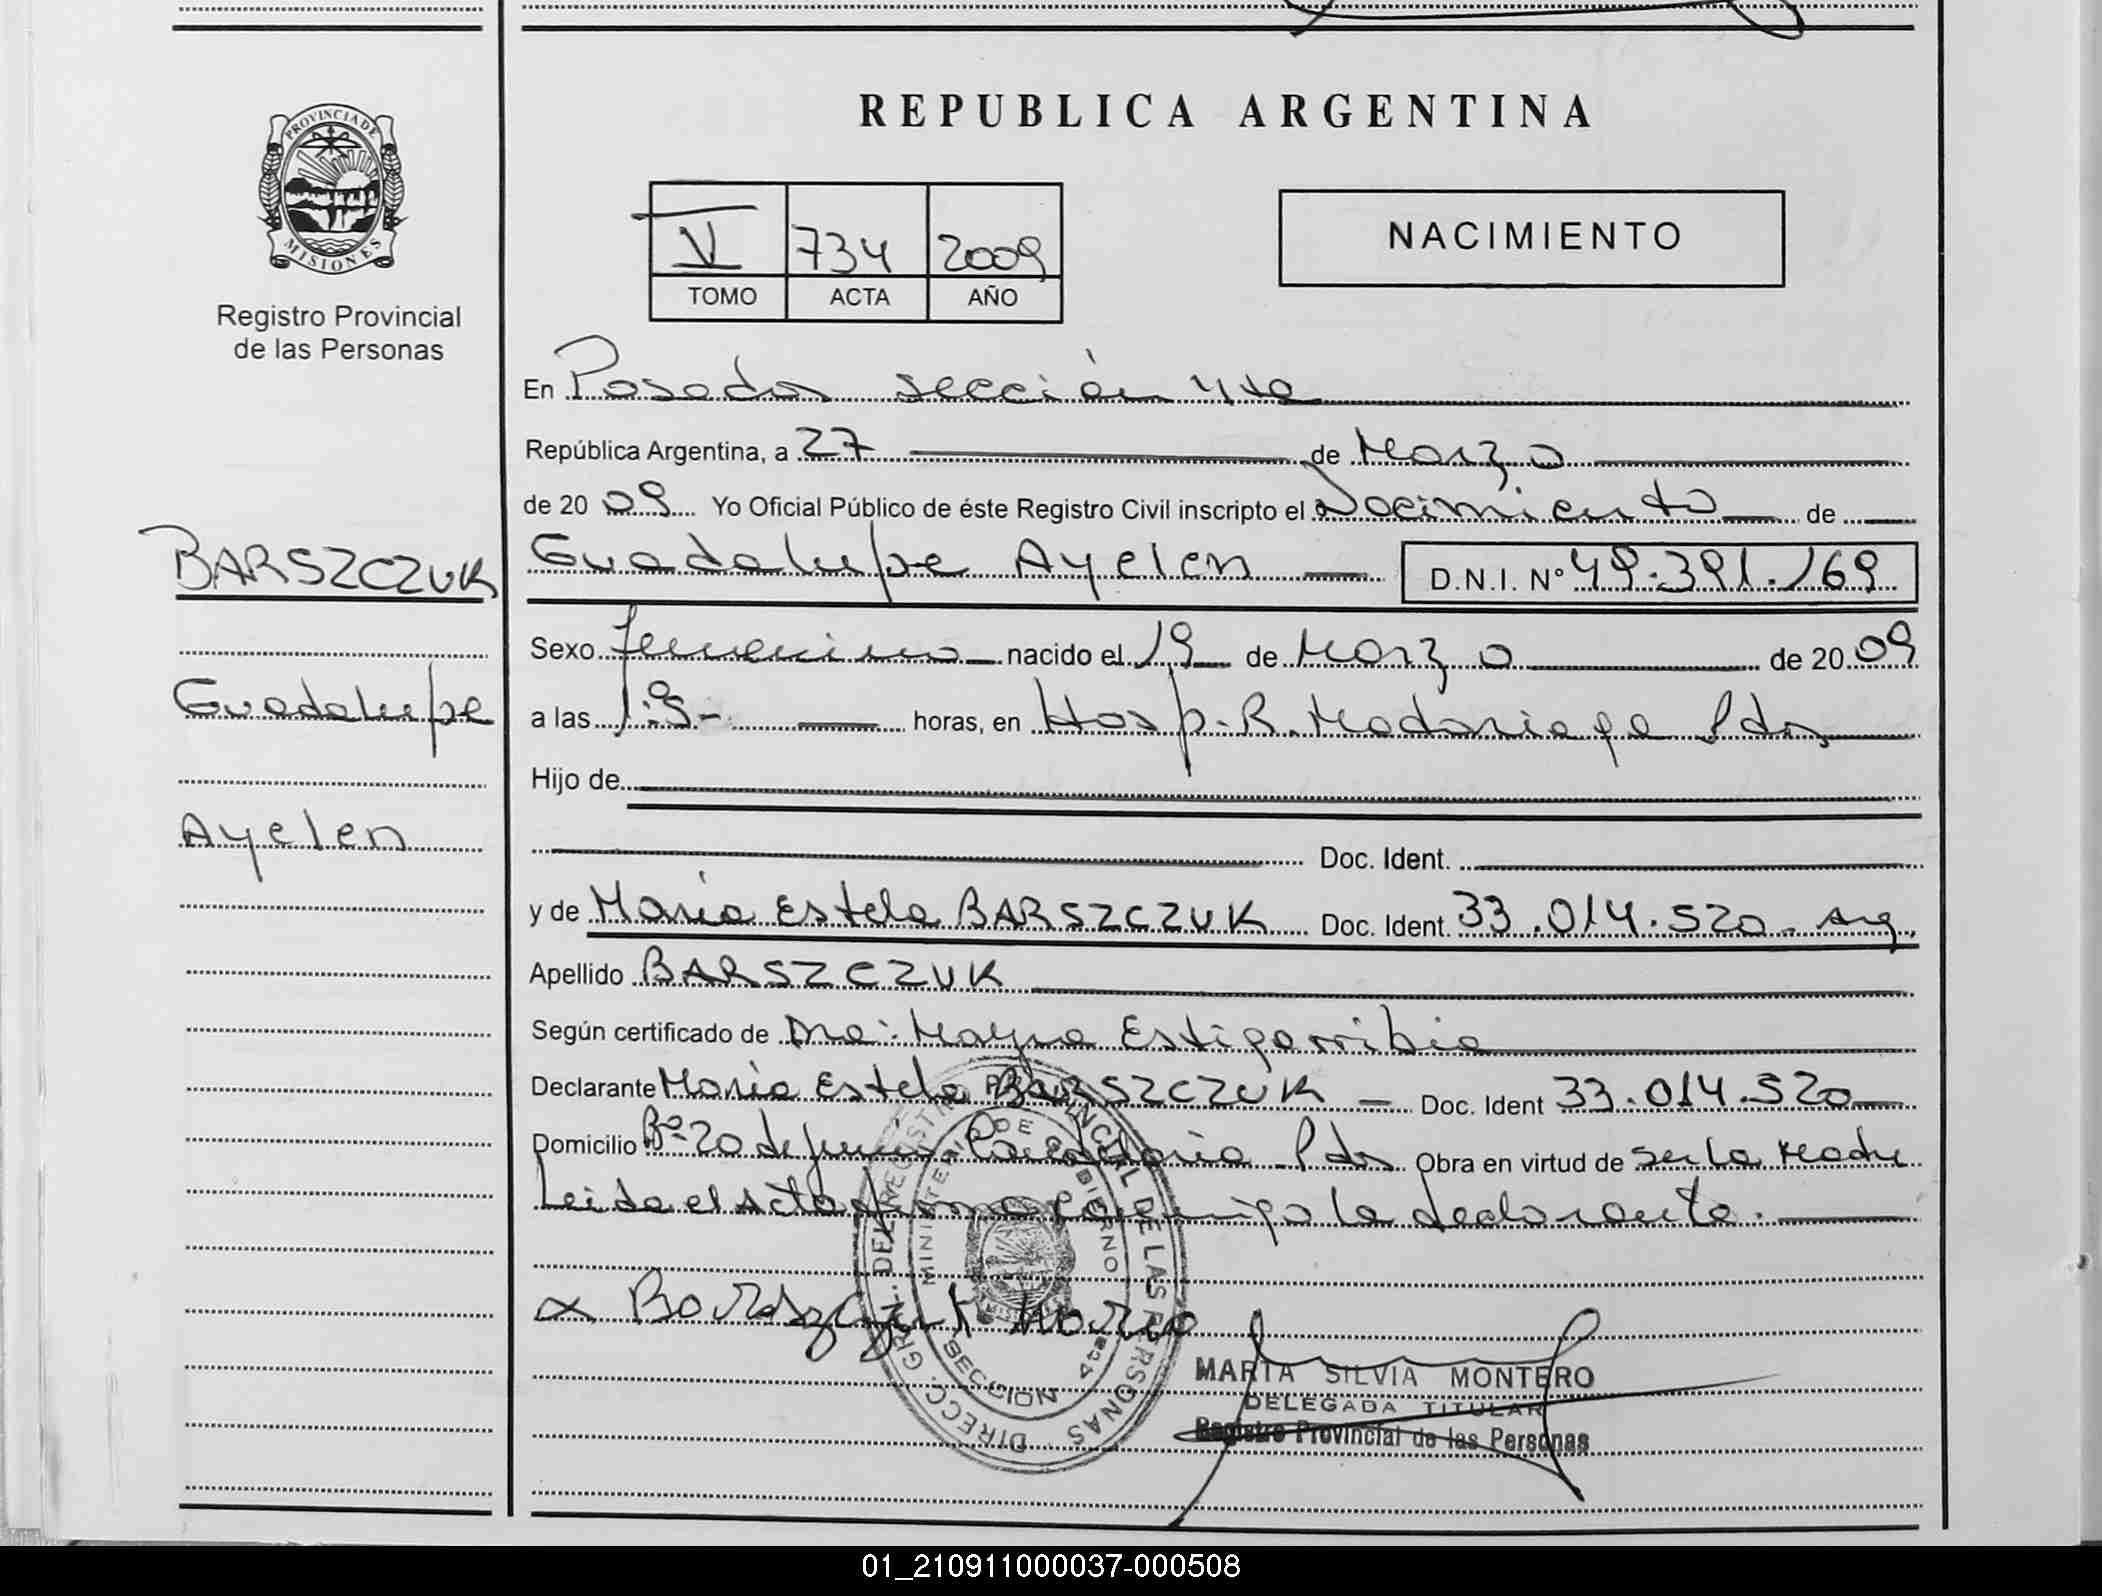 PROVINCIA DE
MISIONES
Registro Provincial
de las Personas
BARSZCZUK
Guadalupe
Ayelen
REPUBLICA ARGENTINA
V 734 2009
TOMO ACTA AÑO
NACIMIENTO
En Posadas sección 4ta
República Argentina, a 27 de Marzo
de 20 09 Yo Oficial Público de éste Registro Civil inscripto el Nacimiento de
Guadalupe Ayelen D.N.I. Nº 49.391.169
Sexo femenino nacido el 19 de Marzo de 20 09
a las horas, en Hosp. R. Madariaga Pdas
Hijo de
Doc. Ident.
y de María Estela BARSZCZUK Doc. Ident. 33.014.520. Arg.
Apellido BARSZCZUK
Según certificado de Dra: Mayra Estigarribia
Declarante María Estela BARSZCZUK Doc. Ident 33.014.520
Domicilio Bº 20 de junio Candelaria Pdas Obra en virtud de ser la Madre
Leida el Acta firma conmigo la declarante.
x Barszczuk Maria
DIRECC. GRAL. DEL REGISTRO PROVINCIAL DE LAS PERSONAS
MINISTERIO DE GOBIERNO
SECCION 4ta
MARTA SILVIA MONTERO
DELEGADA TITULAR
Registro Provincial de las Personas
01_210911000037-000508